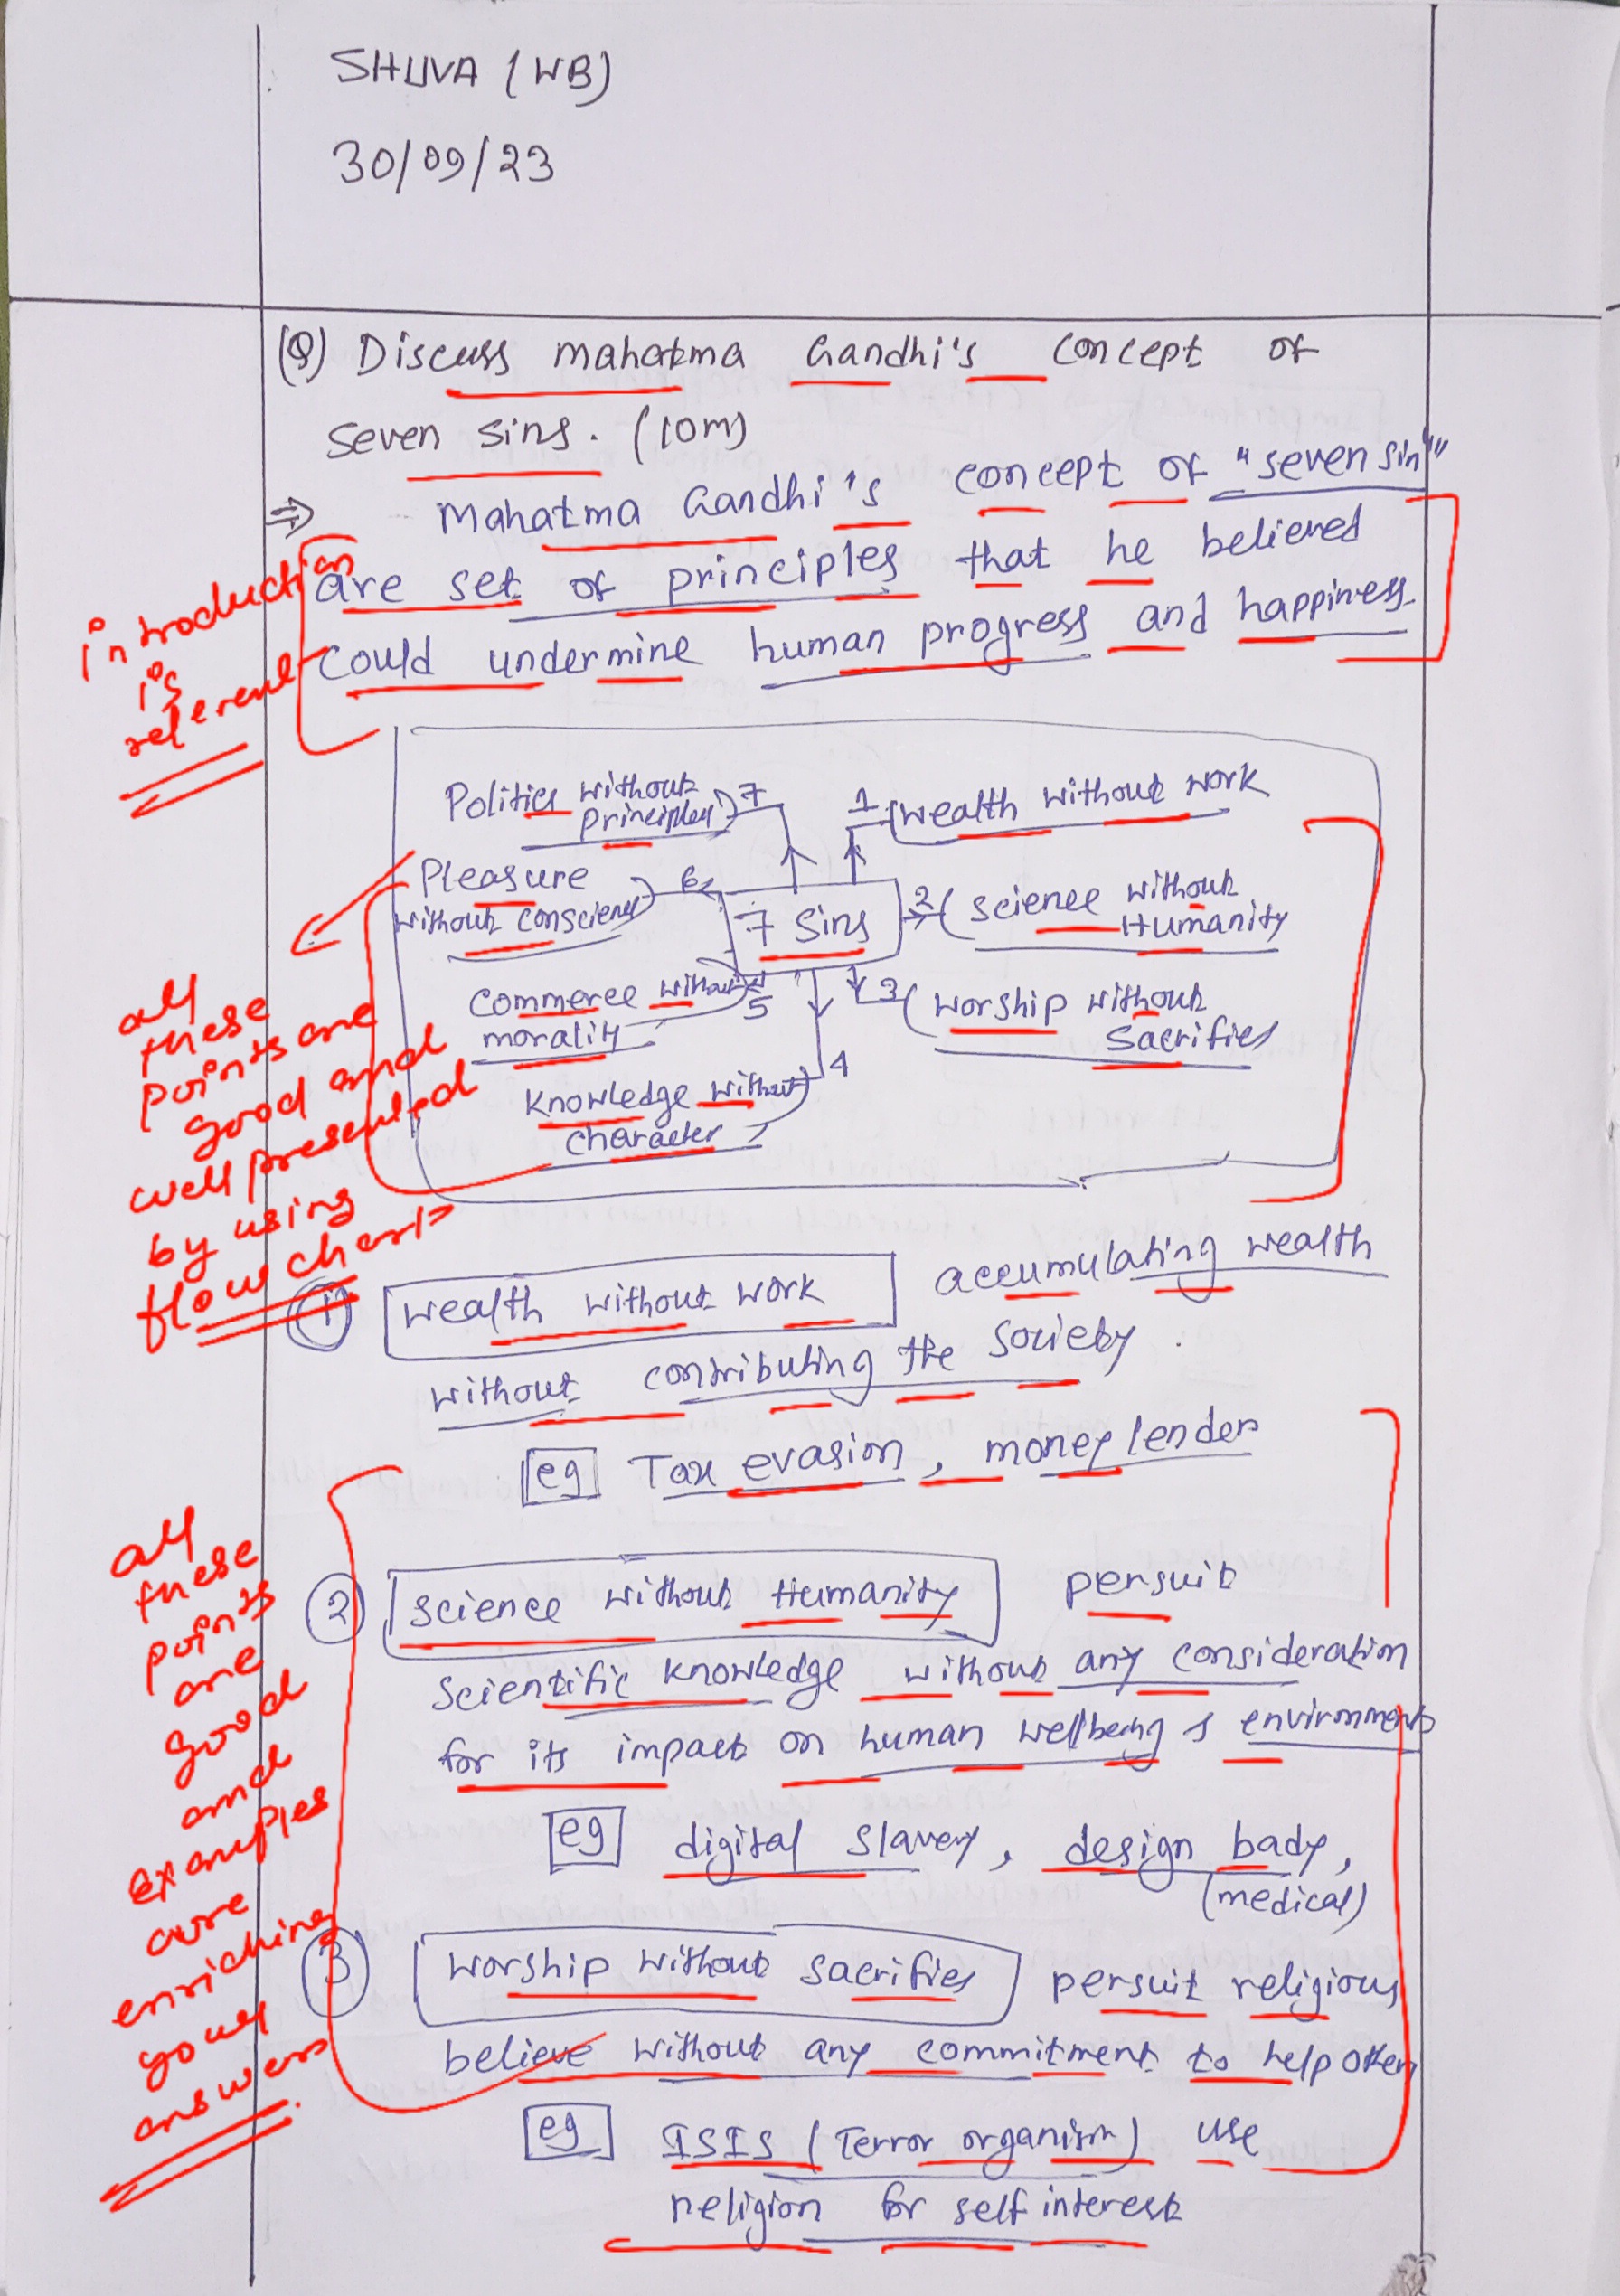 SHUVA (WB)
30/09/23
(Q) Discuss Mahatma Gandhi's concept of
seven sins. (10m)
⇒ Mahatma Gandhi's concept of "seven sin"
are set of principles that he believed
could undermine human progress and happiness.
introduction
is
relevant
Politics without
principles 7
1 wealth without work
Pleasure
without conscience 6
7 Sins
2 Science without
Humanity
Commerce without
morality 5
3 worship without
Sacrifies
4
Knowledge without
character
all
these
points are
good and
well presented
by using
flow chart
(1) wealth without work accumulating wealth
without contributing the society.
eg Tax evasion, money lender
(2) science without Humanity persuit
scientific knowledge without any consideration
for its impact on human wellbeing & environment
eg digital slavery, design bady,
(medical)
(3) worship without sacrifies persuit religious
believe without any commitment to help others
eg ISIS (Terror organism) use
religion for self interest
all
these
points
are
good
and
examples
are
enriching
your
answers